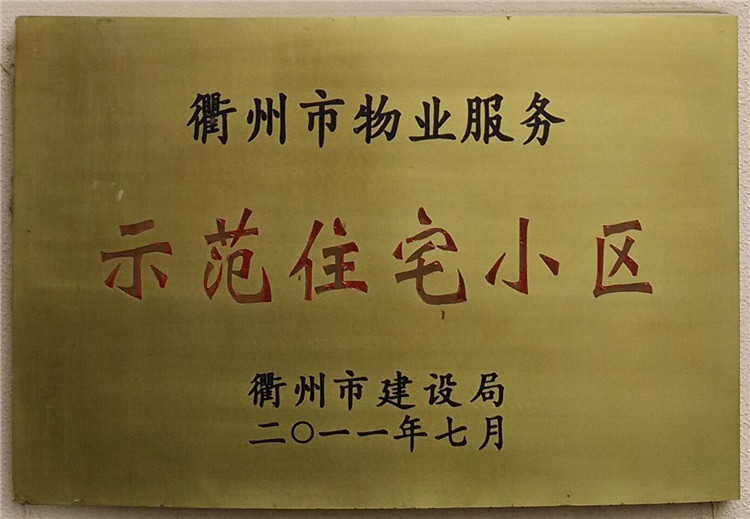 衢州市物业服务
示范住宅小区
衢州市建设局
二〇一一年七月